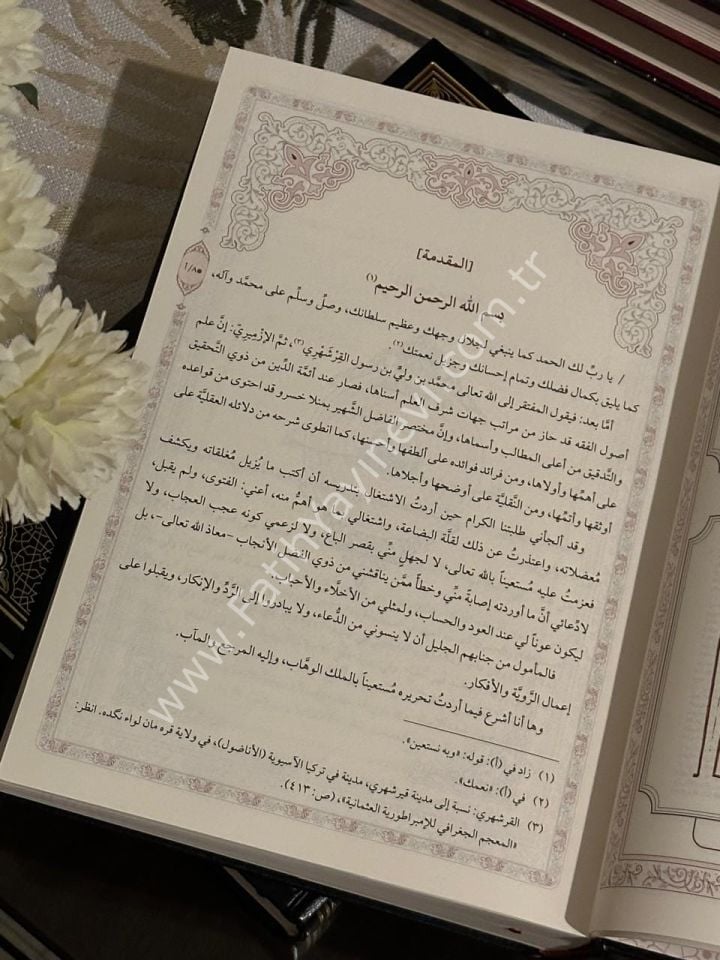 [المقدمة]
بسم الله الرحمن الرحيم(١)
١/٨٥
/ يا ربِّ لك الحمد كما ينبغي لجلال وجهك وعظيم سلطانك، وصلِّ وسلِّم على محمَّد وآله،
كما يليق بكمال فضلك وتمام إحسانك وجزيل نعمتك(٢).
أمَّا بعد: فيقول المفتقر إلى الله تعالى محمَّد بن وليِّ بن رسول القِرْشَهْري(٣)، ثمَّ الإزميريّ: إنَّ علم
أصول الفقه قد حاز من مراتب جهات شرف العلم أسناها، فصار عند أئمَّة الدِّين من ذوي التَّحقيق
والتَّدقيق من أعلى المطالب وأسماها، وإنَّ مختصر الفاضل الشَّهير بمنلا خسرو قد احتوى من قواعده
على أهمِّها وأولاها، ومن فرائد فوائده على ألطفها وأحسنها، كما انطوى شرحه من دلائله العقليَّة على
أوثقها وأتمِّها، ومن النَّقليَّة على أوضحها وأجلاها.
وقد ألجأني طلبتنا الكرام حين أردتُ الاشتغال بتدريسه أن أكتب ما يُزيل مُغلقاته ويكشف
مُعضلاته، واعتذرتُ عن ذلك لقلَّة البضاعة، واشتغالي بما هو أهمُّ منه، أعني: الفتوى، ولم يقبل،
فعزمتُ عليه مُستعيناً بالله تعالى، لا لجهلٍ منِّي بقصر الباع، ولا لزعمي كونه عجب العجاب، ولا
لادِّعائي أنَّ ما أوردته إصابةً منِّي وخطأً ممَّن يناقشني من ذوي الفضل الأنجاب -معاذ الله تعالى-، بل
ليكون عوناً لي عند العود والحساب، ولمثلي من الأخلَّاء والأحباب.
فالمأمول من جنابهم الجليل أن لا ينسوني من الدُّعاء، ولا يبادروا إلى الرَّدِّ والإنكار، ويقبلوا على
إعمال الرَّويَّة والأفكار.
وها أنا أشرع فيما أردتُ تحريره مُستعيناً بالملك الوهَّاب، وإليه المرجع والمآب.
(١) زاد في (أ): قوله: «وبه نستعين».
(٢) في (أ): «نعمك».
(٣) القرشهري: نسبة إلى مدينة قيرشهري، مدينة في تركيا الآسيوية (الأناضول)، في ولاية قره مان لواء نگده. انظر:
«المعجم الجغرافي للإمبراطورية العثمانية»، (ص: ٤١٣).
www.FatihYayinevi.com.tr